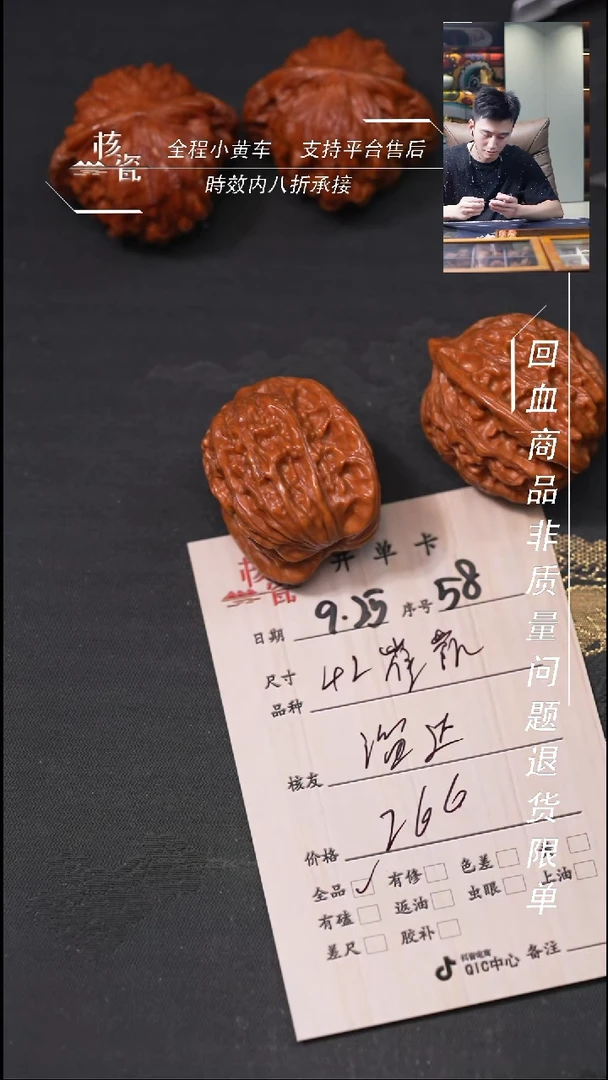 核瓷
全程小黄车 支持平台售后
時效内八折承接
回血商品非质量问题退货限单
核瓷 开单卡
日期 9.25 序号 58
尺寸 42
品种
核友
价格 266
全品 ✓ 有修 色差
有磕 返油 虫眼 上油
差尺 胶补
抖音电商
QIC中心 备注